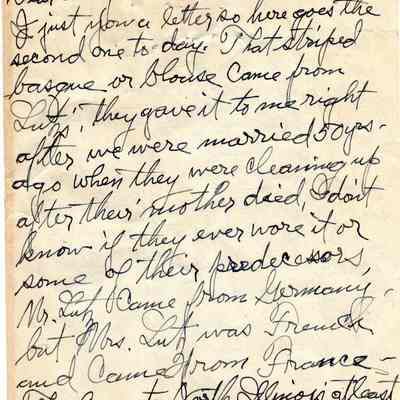 I just you a letter so here goes the
second one to-day. That striped
basque or blouse came from
Lutz', they gave it to me right
after we were married 50 yrs-
ago when they were cleaning up
after their mother died, I don't
know if they ever wore it or
some of their predecessors,
Mr. Lutz came from Germany,
but Mrs. Lutz was French
and came from France-
North Illinois at least